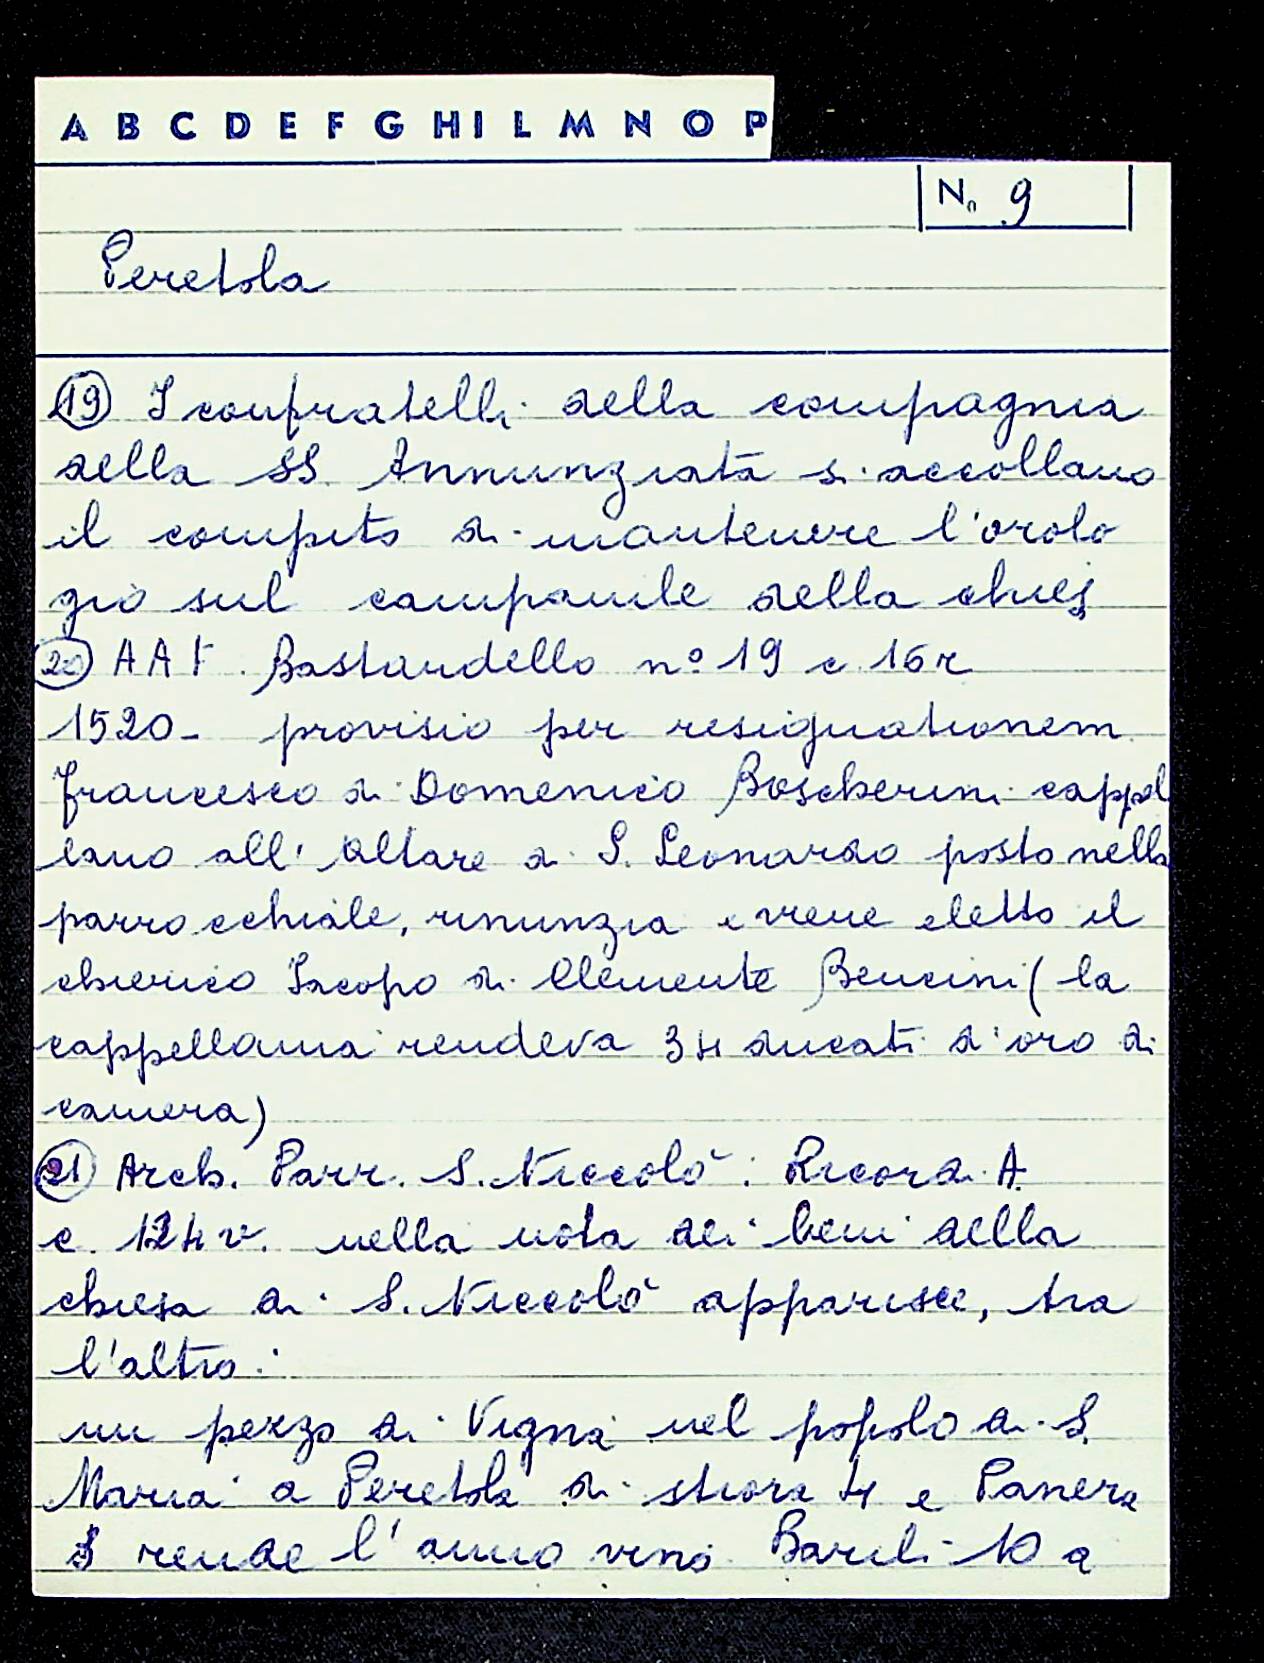 A B C D E F G H I L M N O P
N. 9
Peretola
19 I confratelli della compagnia
della SS. Annunziata si accollano
il compito di mantenere l'orolo
gio sul campanile della chies
20 AAF. Bastardello nº 19 c 16r
1520- provisio per resignationem
Francesco di Domenico Boscherini cappel
lano all'Altare di S. Leonardo posto nella
parrocchiale, rinunzia e viene eletto il
chierico Iacopo di Clemente Bencini (la
cappellania rendeva 34 ducati d'oro di
camera)
21 Arch. Parr. S. Niccolò: Ricordi A.
c. 124v. nella nota dei beni della
chiesa di S. Niccolò apparisce, tra
l'altro:
un pezzo di Vigna nel popolo di S.
Maria a Peretola di stiora 4 e Panora
rende l'anno vino Barili 10 a